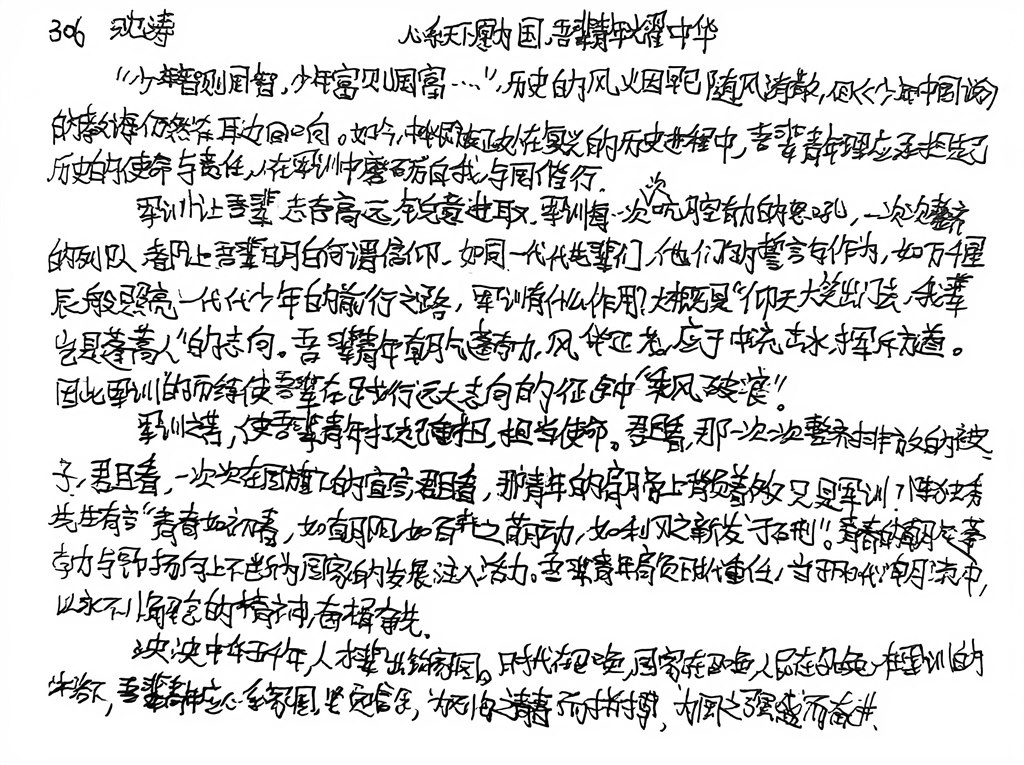 306 沈涛 心系天下愿为国,吾辈青年光耀中华
"少年智则国智,少年富则国富……",历史的风火烟早已随风消散,但《少年中国说》
的教诲仍然在耳边回响。如今,中华民族正处在复兴的历史进程中,吾辈青年理应承担起
历史的使命与责任,在军训中磨砺自我,与国偕行.
军训,让吾辈志存高远,锐意进取.军训每一次次吭腔有力的怒吼,一次次整齐
的列队,都让吾辈明白何谓信仰.如同一代代先辈们,他们的誓言与作为,如万千星
辰般照亮一代代少年的前行之路,军训有什么作用?大概是"仰天大笑出门去,我辈
岂是蓬蒿人"的志向。吾辈青年朝气蓬勃有力,风华正茂,应于中流击水,挥斥方遒。
因此军训的历练使吾辈在践行远大志向的征途中"乘风破浪"!
军训之苦,使吾辈青年扛起重担,担当使命.君且看,那一次一次整齐排放的被
子,君且看,一次次在国旗下的宣言,君且看,那青年的肩膀上背负着的又只是军训?陈独秀
先生有言"青春如初春,如朝阳,如百卉之萌动,如利刃之新发于硎"。青春的朝气蓬
勃力与昂扬向上不断为国家的发展注入活力。吾辈青年肩负时代重任,当于时代潮流中,
以永不懈怠的精神,奋楫争先.
泱泱中华五千年,人才辈出铸家国。时代在召唤,国家在召唤,人民在召唤.在军训的
,吾辈青年应心系家国,坚定信念,为无悔之青春而拼搏,为国之强盛而奋进.